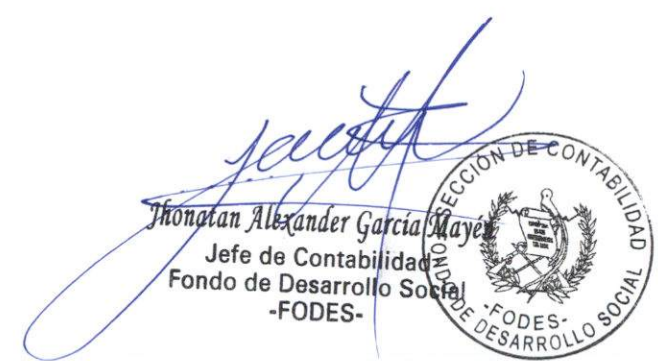 Jhonatan Alexander García Mayén
Jefe de Contabilidad
Fondo de Desarrollo Social
-FODES-
SECCIÓN DE CONTABILIDAD
-FODES-
FONDO DE DESARROLLO SOCIAL